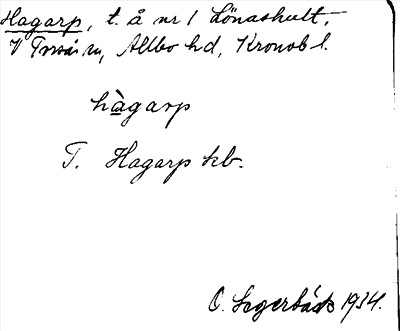 Hagarp, t. å nr 1 Lönashult,
V Torsås sn, Allbo hd, Kronob l.
hàgarp
T. Hagarp kb.
O. Segerbäck 1934.